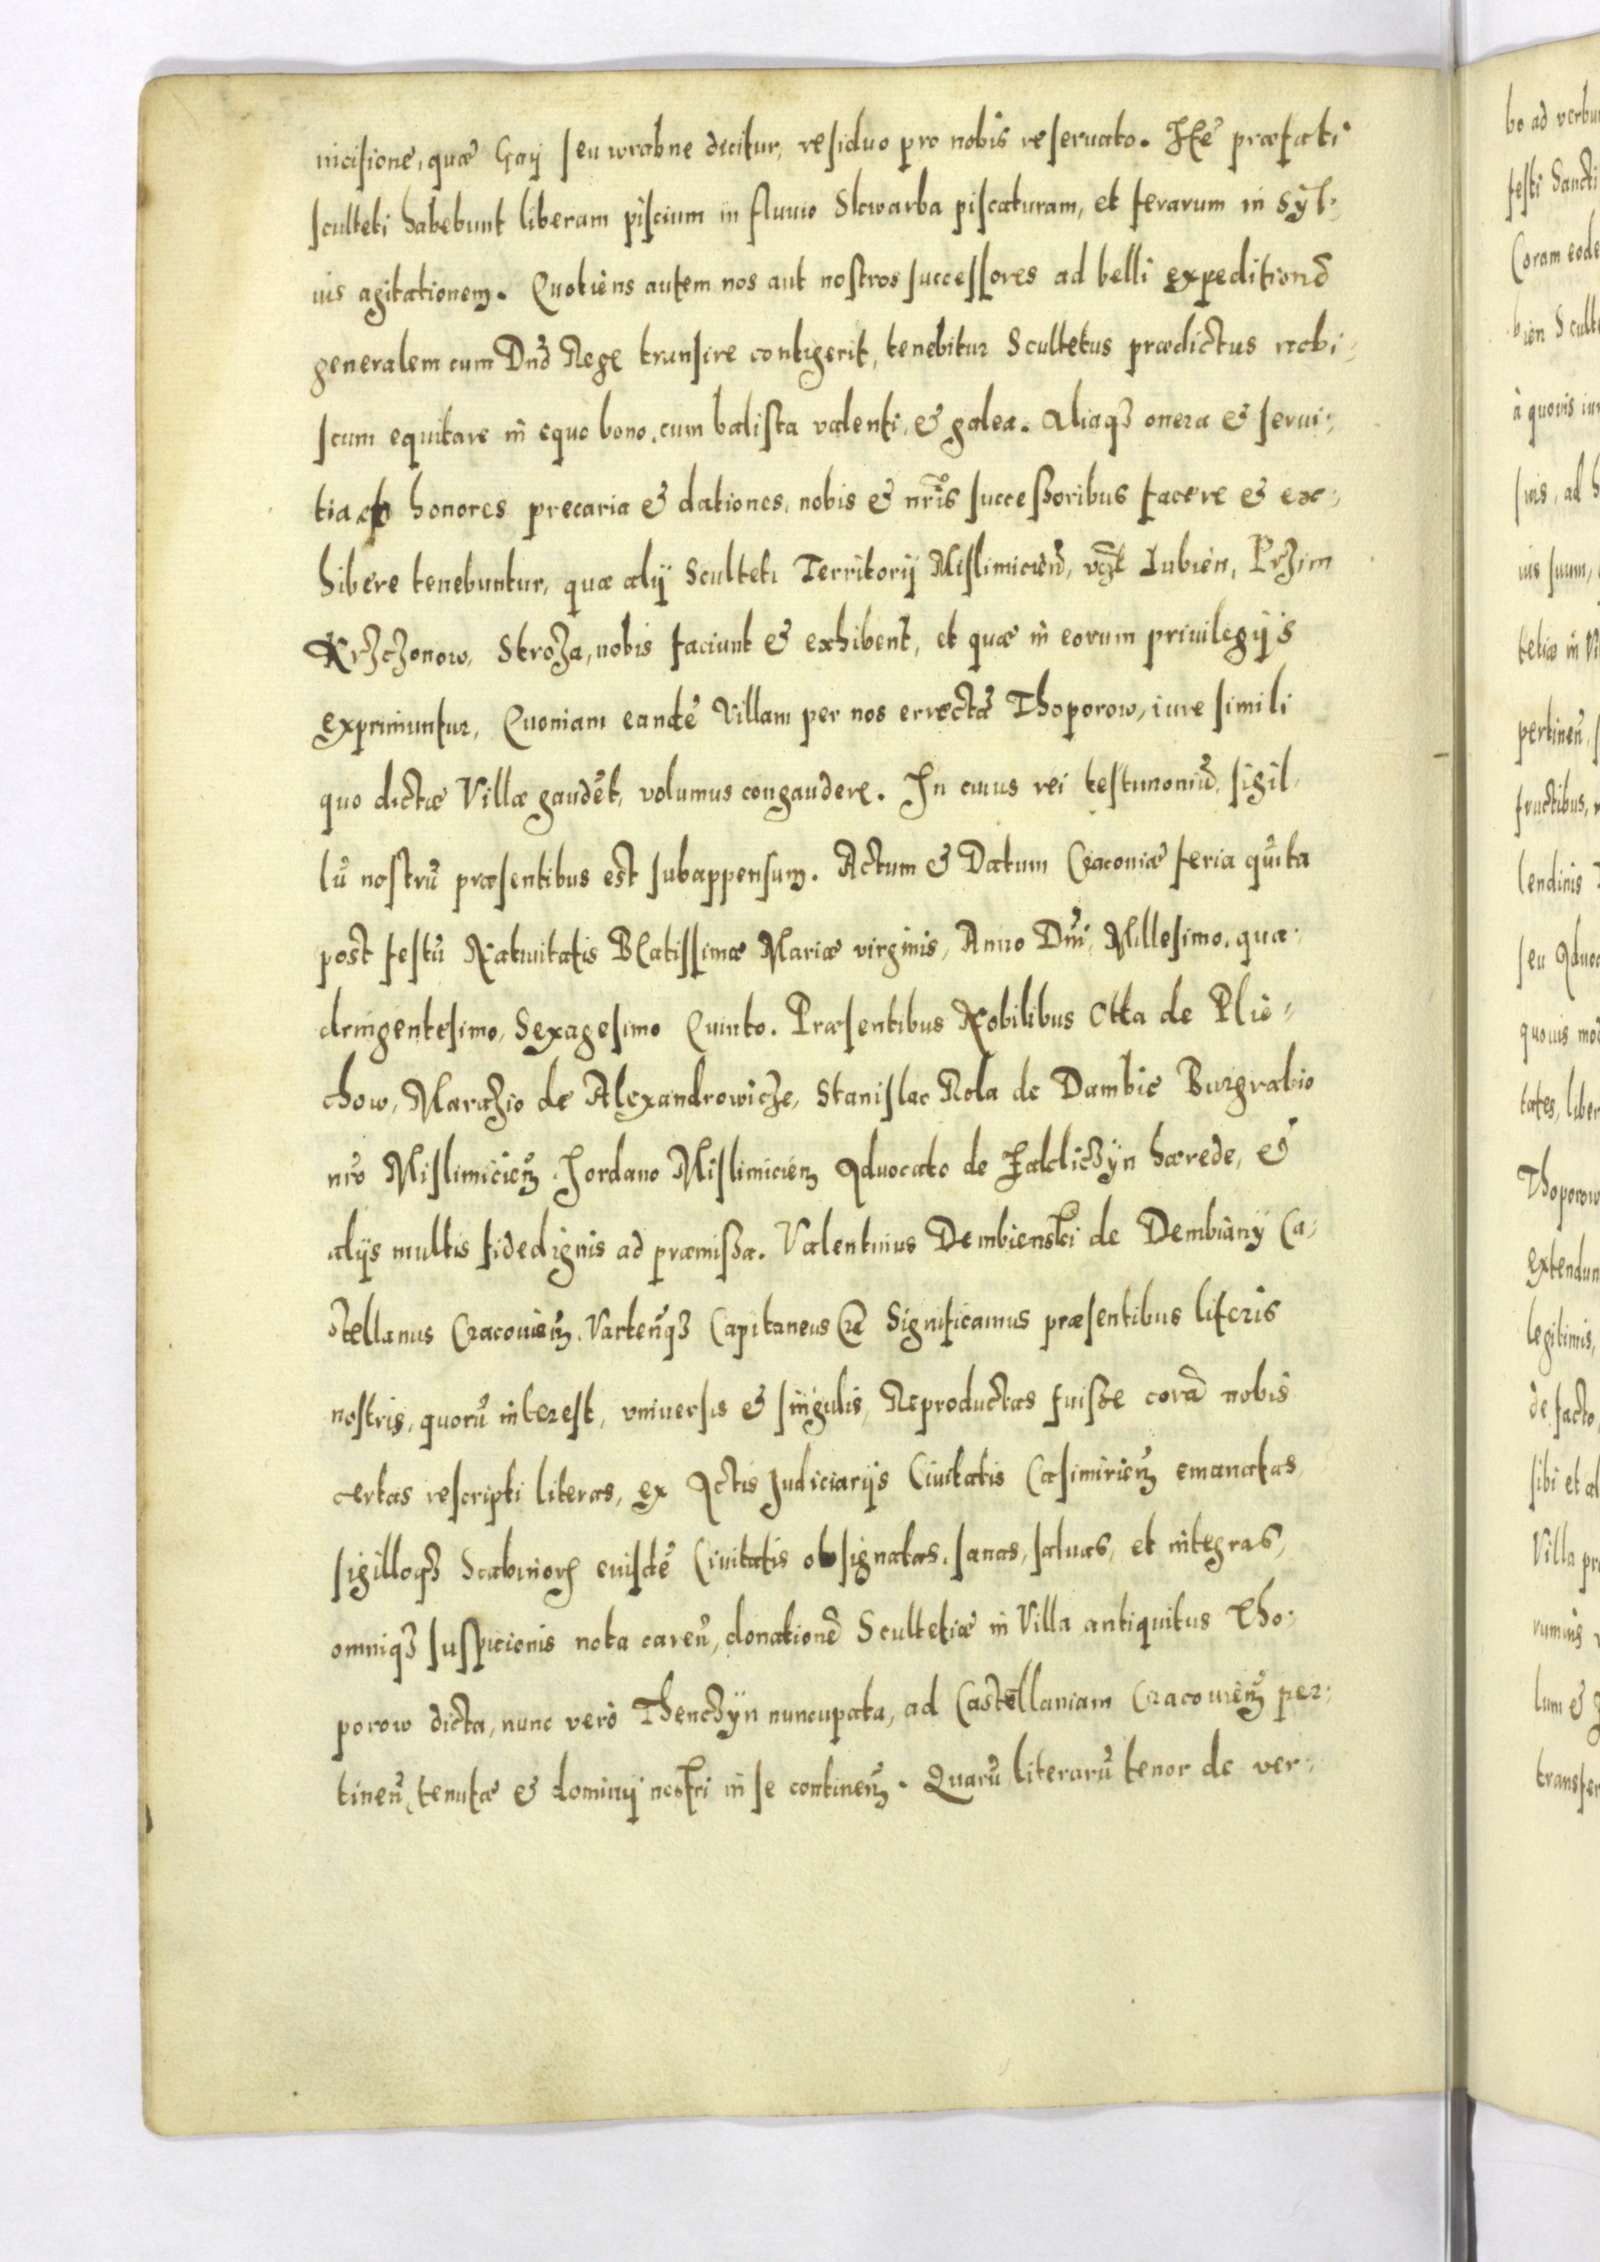 incisione, quæ Gaij seu wrabne dicitur, residuo pro nobis reseruato. Ité præfati
sculteti habebunt liberam piscium in fluuio Skwarba piscaturam, et ferarum in Syl-
uis agitationem. Quotiens autem nos aut nostros successores ad belli expeditionẽ
generalem cum Dnõ Rege transire contigerit, tenebitur Scultetus prædictus nobi-
scum equitare in equo bono, cum balista valenti, & galea. Aliaqȝ onera & serui-
tia honores precaria & dationes, nobis & nr̃is successoribus facere & ex-
hibere tenebuntur, quæ alij Sculteti Territorij Mislimicieñ, vgľt Lubień, Prȝim
Krȝcȝonow, Stroȝa, nobis faciunt & exhibent, et quæ in eorum priuilegijs
exprimuntur, Quoniam eandẽ Villam per nos errectã Thoporow, iure simili
quo dictæ Villæ gaudẽt, volumus congaudere. In cuius rei testimoniũ, sigil-
lũ nostrũ præsentibus est subappensum. Actum & Datum Cracouiæ feria quĩta
post festũ Natiuitatis Beatissimæ Mariæ virginis, Anno Dñi, Millesimo, qua-
dringentesimo, Sexagesimo Quinto. Præsentibus Nobilibus Otta de Plie-
chow, Marȝio de Alexandrowicȝe, Stanislao Rola de Dambie Burgrabio
nr̃o Mislimicieñ, Jordano Mislimicieñ Aduocato de Zaklicȝyn hærede, &
alijs multis fidedignis ad præmissa. Valentinus Dembienski de Dembiany Ca-
stellanus Cracouieñ, Varteñqȝ Capitaneus &c Significamus præsentibus literis
nostris, quorũ interest, vniuersis & singulis, Reproductas fuisse corã nobis
certas rescripti literas, ex Actis Judiciarijs Ciuitatis Casimirieñ emanatas,
sigilloqȝ Scabinorꝝ euisdẽ Ciuitatis obsignatas, sanas, saluas, et integras,
omniqȝ suspicionis nota careñ, donationẽ Scultetiæ in Villa antiquitus Tho-
porow dicta, nunc verò Thencȝyn nuncupata, ad Castellaniam Cracouieñ per-
tineñ, tenutæ & dominij nostri in se contineñ. Quarũ literarũ tenor de ver-